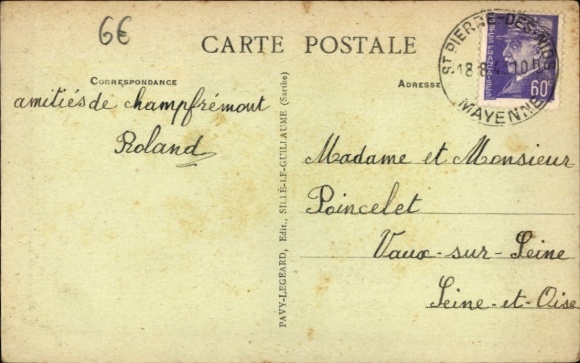 6€
CARTE POSTALE
CORRESPONDANCE
ADRESSE
ST PIERRE-DES-NIDS
18 8
MAYENNE
60
amitiés de champfrémont
Roland
Madame et Monsieur
Poincelet
Vaux-sur-Seine
Seine-et-Oise
PAVY-LEGEARD, Edit., SILLÉ-LE-GUILLAUME (Sarthe)